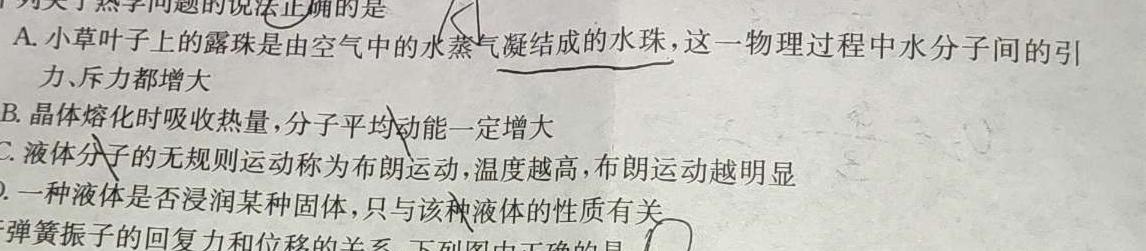 列关于热学问题的说法正确的是
A. 小草叶子上的露珠是由空气中的水蒸气凝结成的水珠,这一物理过程中水分子间的引
力、斥力都增大
B. 晶体熔化时吸收热量,分子平均动能一定增大
C. 液体分子的无规则运动称为布朗运动,温度越高,布朗运动越明显
. 一种液体是否浸润某种固体,只与该种液体的性质有关
弹簧振子的回复力和位移的关系,下列图中正确的是